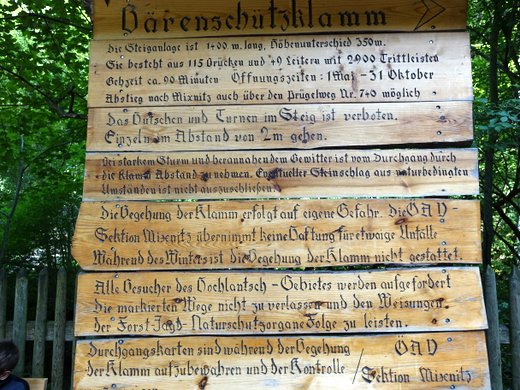 Bärenschützklamm
Die Steiganlage ist 1400 m. lang, Höhenunterschied 350m.
Sie besteht aus 115 Brücken und 49 Leitern mit 2900 Trittleisten
Gehzeit ca. 90 Minuten Öffnungszeiten: 1 Mai - 31 Oktober
Abstieg nach Mixnitz auch über den Prügelweg Nr. 740 möglich
Das Hutschen und Turnen im Steig ist verboten.
Einzeln im Abstand von 2m gehen.
Bei starkem Sturm und herannahendem Gewitter ist vom Durchgang durch
die Klamm Abstand zu nehmen. Eventueller Steinschlag aus naturbedingten
Umständen ist nicht auszuschließen!
Die Begehung der Klamm erfolgt auf eigene Gefahr. Die ÖAV-
Sektion Mixnitz übernimmt keine Haftung für etwaige Unfälle
Während des Winters ist die Begehung der Klamm nicht gestattet.
Alle Besucher des Hochlantsch-Gebietes werden aufgefordert
die markierten Wege nicht zu verlassen und den Weisungen
der Forst Jagd-Naturschutzorgane Folge zu leisten.
Durchgangskarten sind während der Begehung ÖAV
der Klamm aufzubewahren und der Kontrolle / Sektion Mixnitz